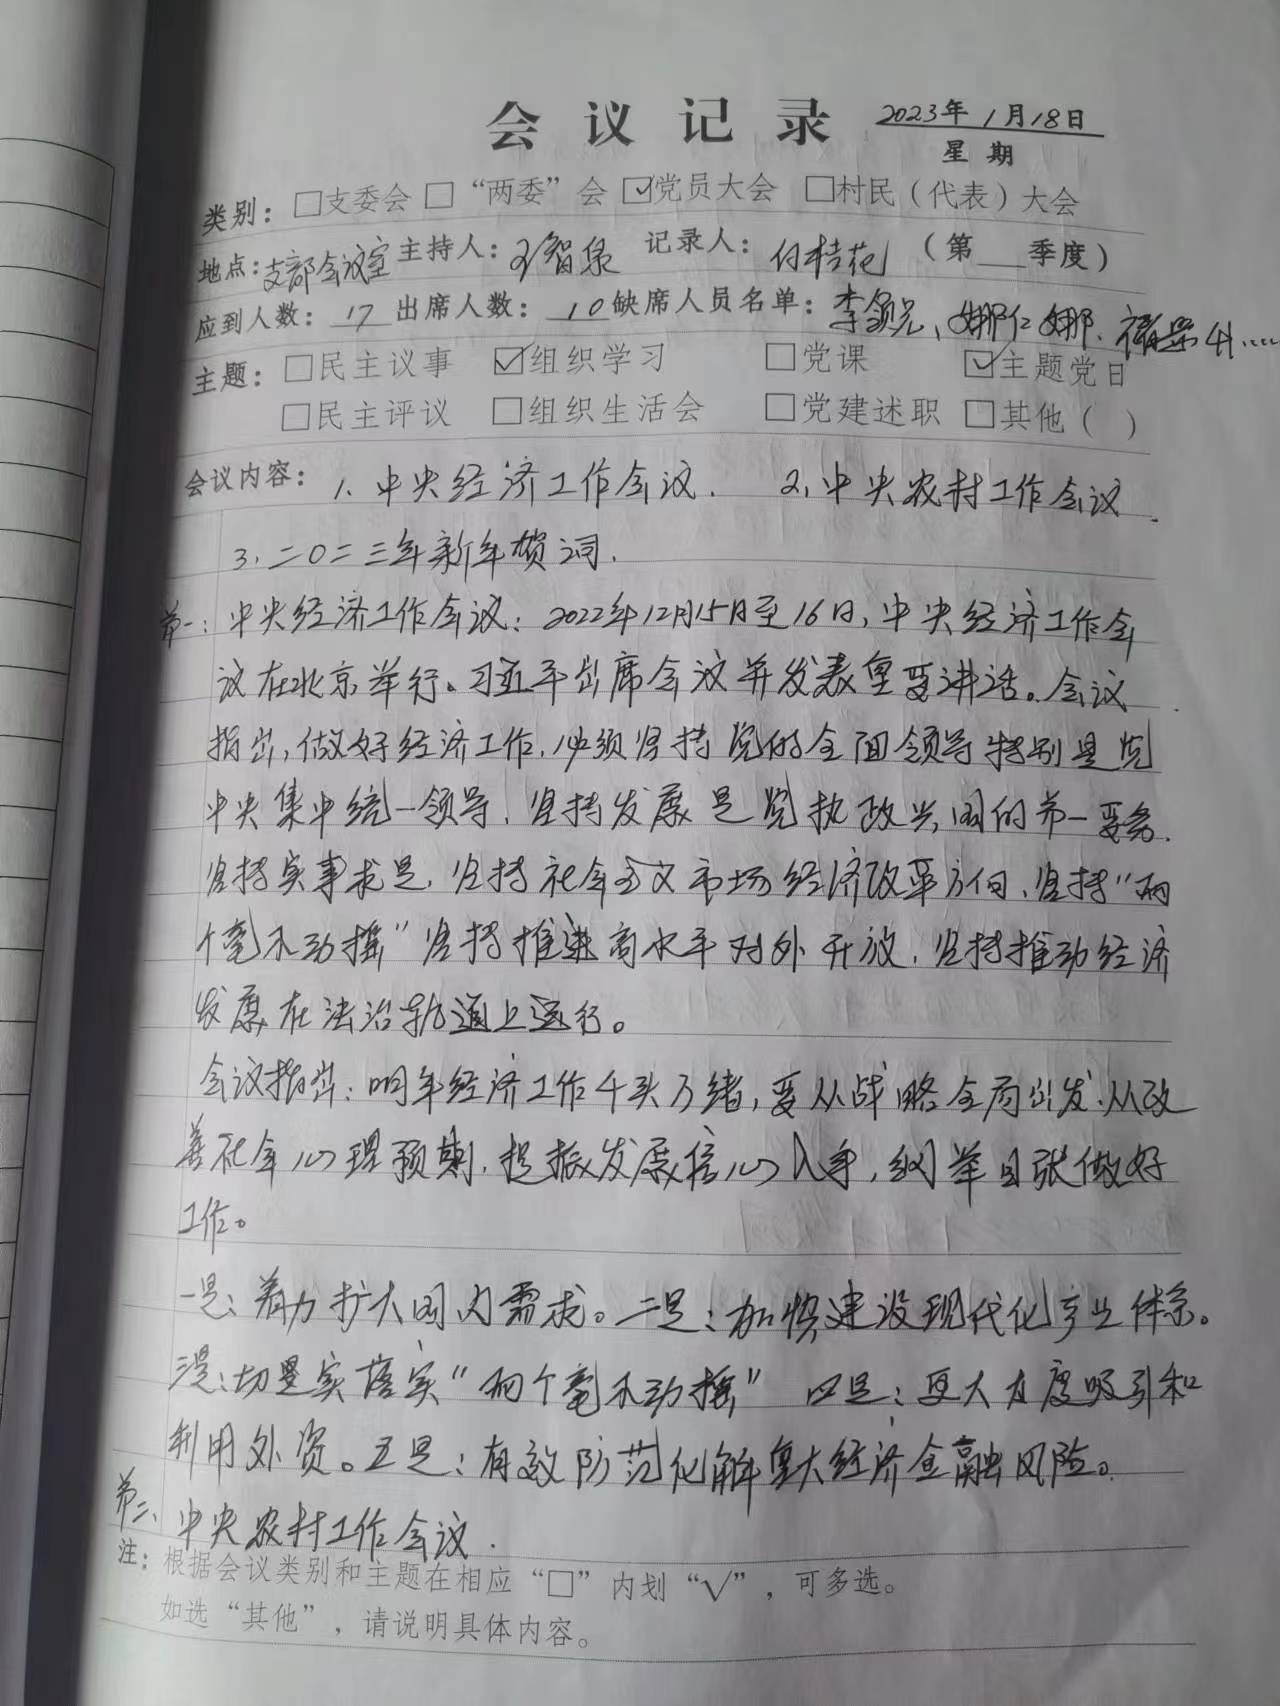 会议记录
2023年1月18日
星期
类别：□支委会 □“两委”会 ☑党员大会 □村民（代表）大会
地点：支部会议室 主持人：王智泉 记录人：付桂花 （第 季度）
应到人数：17 出席人数：10 缺席人员名单：李领兄、娜仁娜、
主题：□民主议事 ☑组织学习 □党课 ☑主题党日
□民主评议 □组织生活会 □党建述职 □其他（ ）
会议内容：1、中央经济工作会议． 2、中央农村工作会议．
3、二〇二三年新年贺词．
第一：中央经济工作会议：2022年12月15日至16日，中央经济工作会
议在北京举行。习近平出席会议并发表重要讲话。会议
指出，做好经济工作，必须坚持党的全面领导特别是党
中央集中统一领导，坚持发展是党执政兴国的第一要务．
坚持实事求是，坚持社会主义市场经济改革方向，坚持“两
个毫不动摇”坚持推进高水平对外开放，坚持推动经济
发展在法治轨道上运行。
会议指出：明年经济工作千头万绪，要从战略全局出发，从改
善社会心理预期，提振发展信心入手，纲举目张做好
工作。
一是：着力扩大国内需求。二是：加快建设现代化产业体系。
三是：切是实落实“两个毫不动摇” 四是：更大力度吸引和
利用外资。五是：有效防范化解重大经济金融风险。
第二、中央农村工作会议．
注：根据会议类别和主题在相应“□”内划“√”，可多选。
如选“其他”，请说明具体内容。